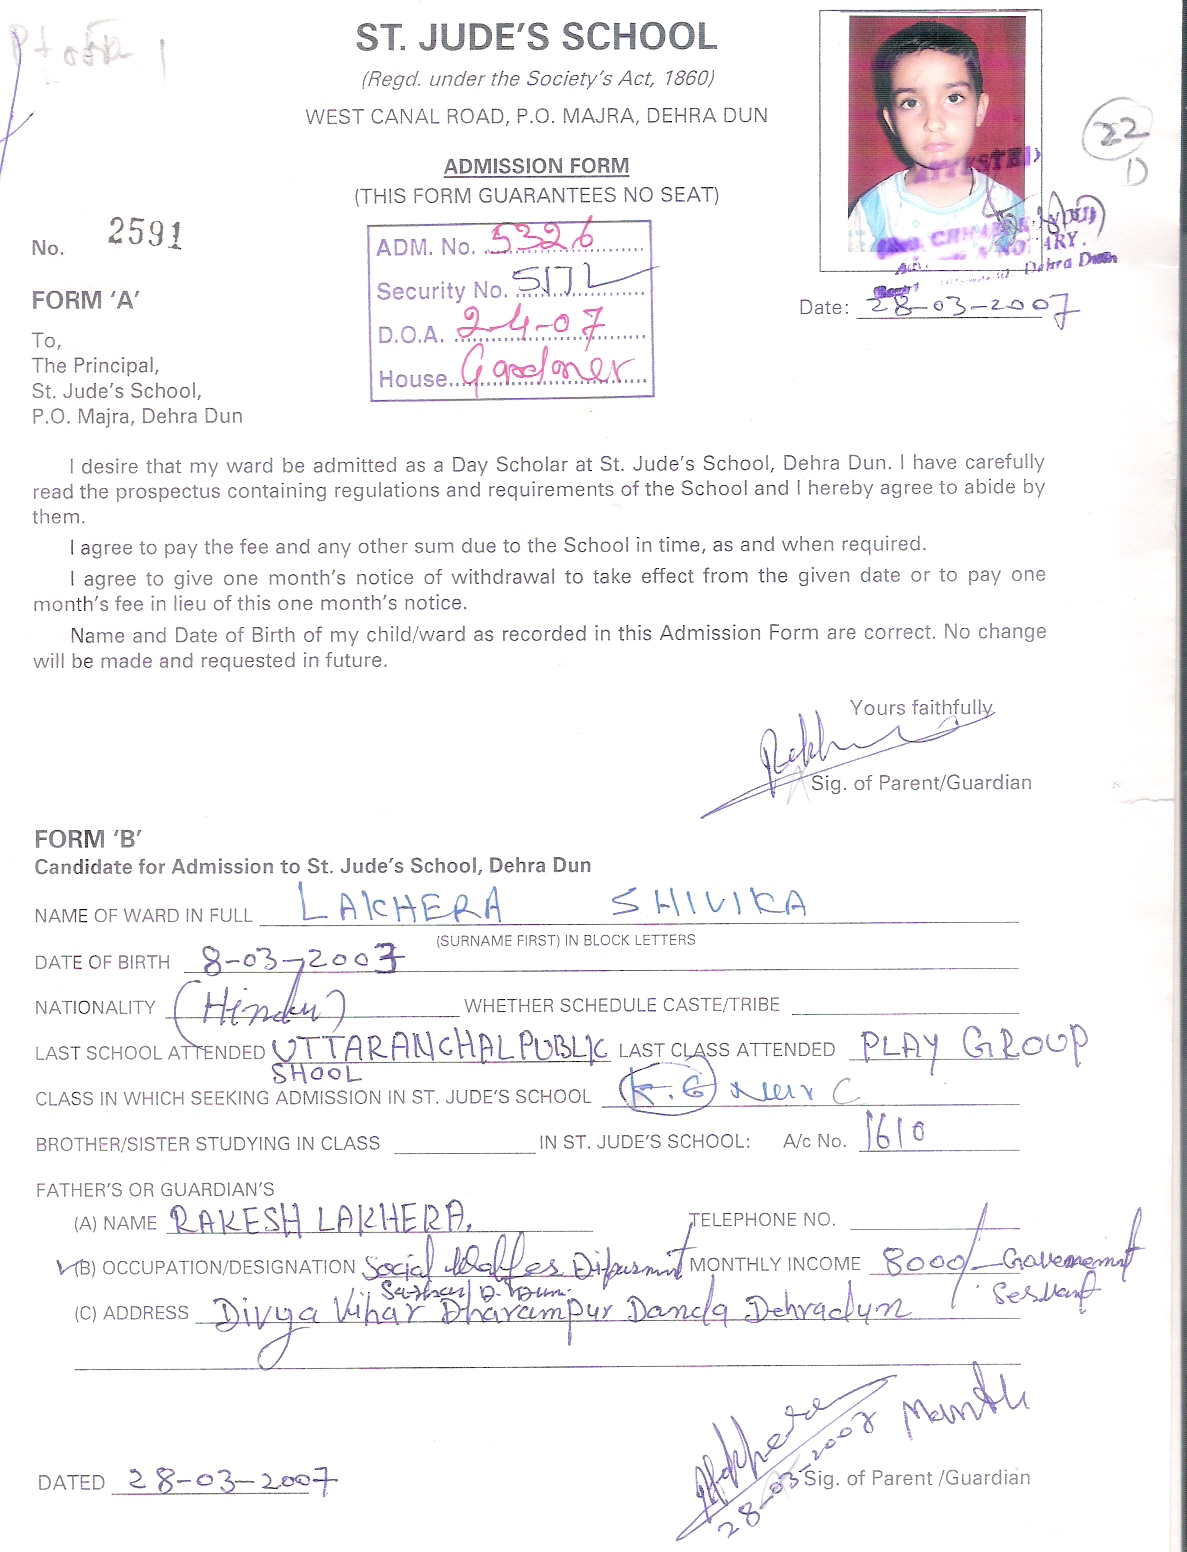 ST. JUDE'S SCHOOL
(Regd. under the Society's Act, 1860)
WEST CANAL ROAD, P.O. MAJRA, DEHRA DUN
22
D
ADMISSION FORM
(THIS FORM GUARANTEES NO SEAT)
ATTESTED
No. 2591
ADM. No. 5326
Security No.
D.O.A. 2-4-07
House Gardner
NOTARY
Dehra Dun
Date: 28-03-2007
FORM 'A'
To,
The Principal,
St. Jude's School,
P.O. Majra, Dehra Dun
I desire that my ward be admitted as a Day Scholar at St. Jude's School, Dehra Dun. I have carefully
read the prospectus containing regulations and requirements of the School and I hereby agree to abide by
them.
I agree to pay the fee and any other sum due to the School in time, as and when required.
I agree to give one month's notice of withdrawal to take effect from the given date or to pay one
month's fee in lieu of this one month's notice.
Name and Date of Birth of my child/ward as recorded in this Admission Form are correct. No change
will be made and requested in future.
Yours faithfully
Sig. of Parent/Guardian
FORM 'B'
Candidate for Admission to St. Jude's School, Dehra Dun
NAME OF WARD IN FULL LAKHERA SHIVIKA
(SURNAME FIRST) IN BLOCK LETTERS
DATE OF BIRTH 8-03-2003
NATIONALITY (Hindu) WHETHER SCHEDULE CASTE/TRIBE
LAST SCHOOL ATTENDED UTTARANCHAL PUBLIC LAST CLASS ATTENDED PLAY GROUP
SHOOL
CLASS IN WHICH SEEKING ADMISSION IN ST. JUDE'S SCHOOL K.G C
BROTHER/SISTER STUDYING IN CLASS IN ST. JUDE'S SCHOOL: A/c No. 1610
FATHER'S OR GUARDIAN'S
(A) NAME RAKESH LAKHERA. TELEPHONE NO.
(B) OCCUPATION/DESIGNATION Social MONTHLY INCOME 8000/-
(C) ADDRESS Divya Vihar Dharampur Danda Dehradun
Month
28-03-2007
DATED 28-03-2007 Sig. of Parent /Guardian